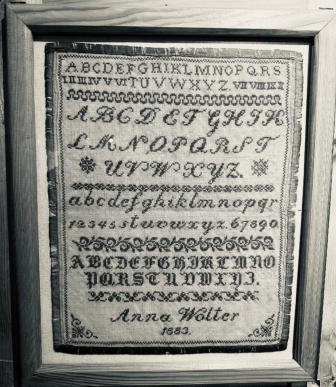 ABCDEFGHIKLMNOPQRS
I II III IV V VI TUVWXYZ. VII VIII IX X
ABCDEFGHIK
LMNOPQRST
UVWXYZ.
abcdefghiklmnopqr
12345 stuvwxyz. 67890.
ABCDEFGHIKLMNO
PQRSTUVWXYZ.
Anna Wolter
1883.